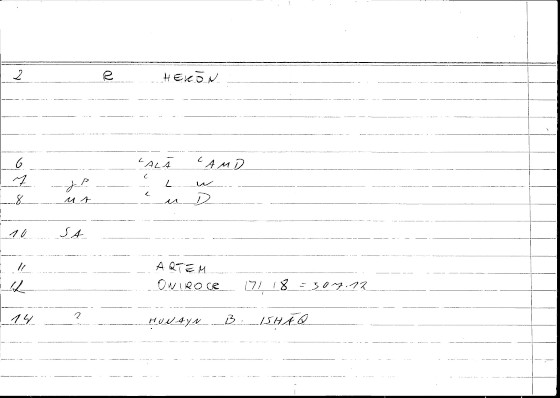 2 R HEKŌN
6 ʿALĀ ʿAMD
7 JP ʿ L W
8 MA ʿ M D
10 SA
11 ARTEM
12 ONIROCR 171,18 = 307.12
14 ? HUNAYN B. ISHĀQ